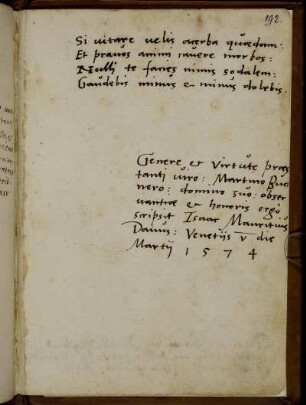 192.
Si vitare velis acerba quædam:
Et pravos animi cavere morbos:
Nulli te facies nimis sodalem:
Gaudebis minus et minus dolebis.
Genere et Virtute præs
tanti viro: Martino
nero: domino suo: obser
vantiæ et honoris ergo
scripsit Isaac Mauritius
Danus: Venetijs V die
Martij 1574